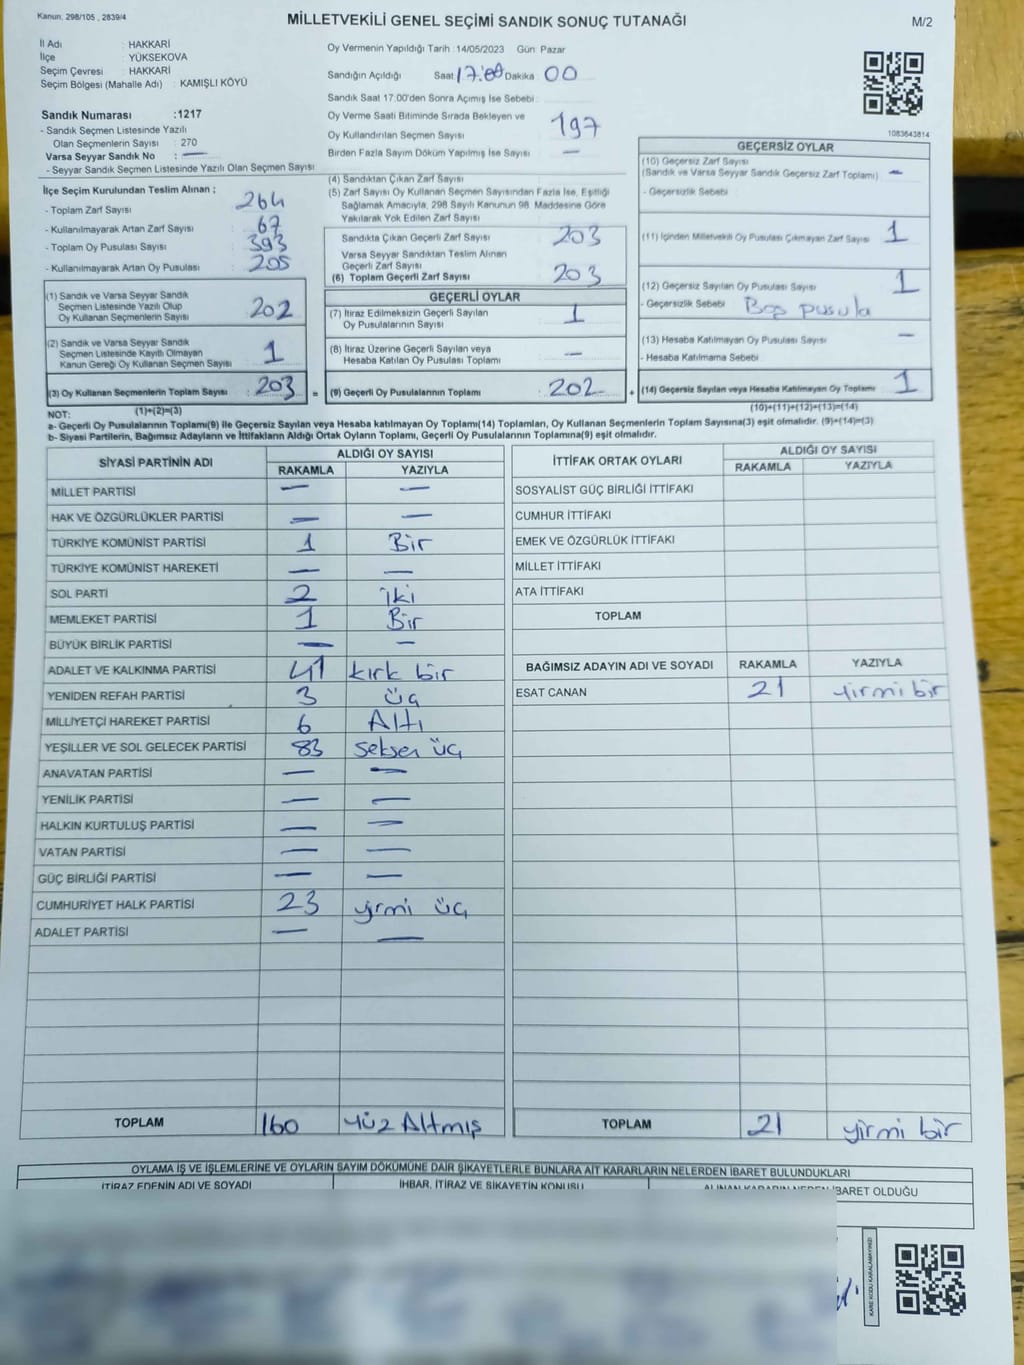 Kanun, 298/105 , 2839/4
MİLLETVEKİLİ GENEL SEÇİMİ SANDIK SONUÇ TUTANAĞI
M/2
İl Adı : HAKKARİ
İlçe : YÜKSEKOVA
Seçim Çevresi : HAKKARİ
Seçim Bölgesi (Mahalle Adı) : KAMIŞLI KÖYÜ
Sandık Numarası :1217
- Sandık Seçmen Listesinde Yazılı
Olan Seçmenlerin Sayısı : 270
Varsa Seyyar Sandık No : —
- Seyyar Sandık Seçmen Listesinde Yazılı Olan Seçmen Sayısı
Oy Vermenin Yapıldığı Tarih :14/05/2023 Gün: Pazar
Sandığın Açıldığı Saat 17:00 Dakika 00
Sandık Saat 17.00'den Sonra Açımış İse Sebebi :
Oy Verme Saati Bitiminde Sırada Bekleyen ve
Oy Kullandırılan Seçmen Sayısı : 197
Birden Fazla Sayım Döküm Yapılmış İse Sayısı : —
1083643814
İlçe Seçim Kurulundan Teslim Alınan ;
- Toplam Zarf Sayısı : 264
- Kullanılmayarak Artan Zarf Sayısı : 67
- Toplam Oy Pusulası Sayısı : 393
- Kullanılmayarak Artan Oy Pusulası : 205
(1) Sandık ve Varsa Seyyar Sandık
Seçmen Listesinde Yazılı Olup
Oy Kullanan Seçmenlerin Sayısı : 202
(2) Sandık ve Varsa Seyyar Sandık
Seçmen Listesinde Kayıtlı Olmayan
Kanun Gereği Oy Kullanan Seçmen Sayısı : 1
(3) Oy Kullanan Seçmenlerin Toplam Sayısı : 203 =
(1)+(2)=(3)
(4) Sandıktan Çıkan Zarf Sayısı :
(5) Zarf Sayısı Oy Kullanan Seçmen Sayısından Fazla İse, Eşitliği
Sağlamak Amacıyla, 298 Sayılı Kanunun 98. Maddesine Göre
Yakılarak Yok Edilen Zarf Sayısı :
Sandıkta Çıkan Geçerli Zarf Sayısı : 203
Varsa Seyyar Sandıktan Teslim Alınan
Geçerli Zarf Sayısı :
(6) Toplam Geçerli Zarf Sayısı : 203
GEÇERLİ OYLAR
(7) İtiraz Edilmeksizin Geçerli Sayılan
Oy Pusulalarının Sayısı : 1
(8) İtiraz Üzerine Geçerli Sayılan veya
Hesaba Katılan Oy Pusulası Toplamı : —
(9) Geçerli Oy Pusulalarının Toplamı : 202 +
GEÇERSİZ OYLAR
(10) Geçersiz Zarf Sayısı
(Sandık ve Varsa Seyyar Sandık Geçersiz Zarf Toplamı) : —
- Geçersizlik Sebebi :
(11) İçinden Milletvekili Oy Pusulası Çıkmayan Zarf Sayısı : 1
(12) Geçersiz Sayılan Oy Pusulası Sayısı : 1
- Geçersizlik Sebebi : Boş pusula
(13) Hesaba Katılmayan Oy Pusulası Sayısı : —
- Hesaba Katılmama Sebebi :
(14) Geçersiz Sayılan veya Hesaba Katılmayan Oy Toplamı : 1
(10)+(11)+(12)+(13)=(14)
NOT:
a- Geçerli Oy Pusulalarının Toplamı(9) ile Geçersiz Sayılan veya Hesaba katılmayan Oy Toplamı(14) Toplamları, Oy Kullanan Seçmenlerin Toplam Sayısına(3) eşit olmalıdır. (9)+(14)=(3)
b- Siyasi Partilerin, Bağımsız Adayların ve İttifakların Aldığı Ortak Oyların Toplamı, Geçerli Oy Pusulalarının Toplamına(9) eşit olmalıdır.
SİYASİ PARTİNİN ADI ALDIĞI OY SAYISI
RAKAMLA YAZIYLA
MİLLET PARTİSİ — —
HAK VE ÖZGÜRLÜKLER PARTİSİ — —
TÜRKİYE KOMÜNİST PARTİSİ 1 Bir
TÜRKİYE KOMÜNİST HAREKETİ — —
SOL PARTİ 2 iki
MEMLEKET PARTİSİ 1 Bir
BÜYÜK BİRLİK PARTİSİ — —
ADALET VE KALKINMA PARTİSİ 41 kırk bir
YENİDEN REFAH PARTİSİ 3 üç
MİLLİYETÇİ HAREKET PARTİSİ 6 Altı
YEŞİLLER VE SOL GELECEK PARTİSİ 83 seksen üç
ANAVATAN PARTİSİ — —
YENİLİK PARTİSİ — —
HALKIN KURTULUŞ PARTİSİ — —
VATAN PARTİSİ — —
GÜÇ BİRLİĞİ PARTİSİ — —
CUMHURİYET HALK PARTİSİ 23 yirmi üç
ADALET PARTİSİ — —
TOPLAM 160 yüz Altmış
İTTİFAK ORTAK OYLARI ALDIĞI OY SAYISI
RAKAMLA YAZIYLA
SOSYALİST GÜÇ BİRLİĞİ İTTİFAKI
CUMHUR İTTİFAKI
EMEK VE ÖZGÜRLÜK İTTİFAKI
MİLLET İTTİFAKI
ATA İTTİFAKI
TOPLAM
BAĞIMSIZ ADAYIN ADI VE SOYADI RAKAMLA YAZIYLA
ESAT CANAN 21 yirmi bir
TOPLAM 21 yirmi bir
OYLAMA İŞ VE İŞLEMLERİNE VE OYLARIN SAYIM DÖKÜMÜNE DAİR ŞİKAYETLERLE BUNLARA AİT KARARLARIN NELERDEN İBARET BULUNDUKLARI
İTİRAZ EDENİN ADI VE SOYADI İHBAR, İTİRAZ VE ŞİKAYETİN KONUSU ALINAN KARARIN NEDEN İBARET OLDUĞU
KARE KODU KARALAMAYINIZ!